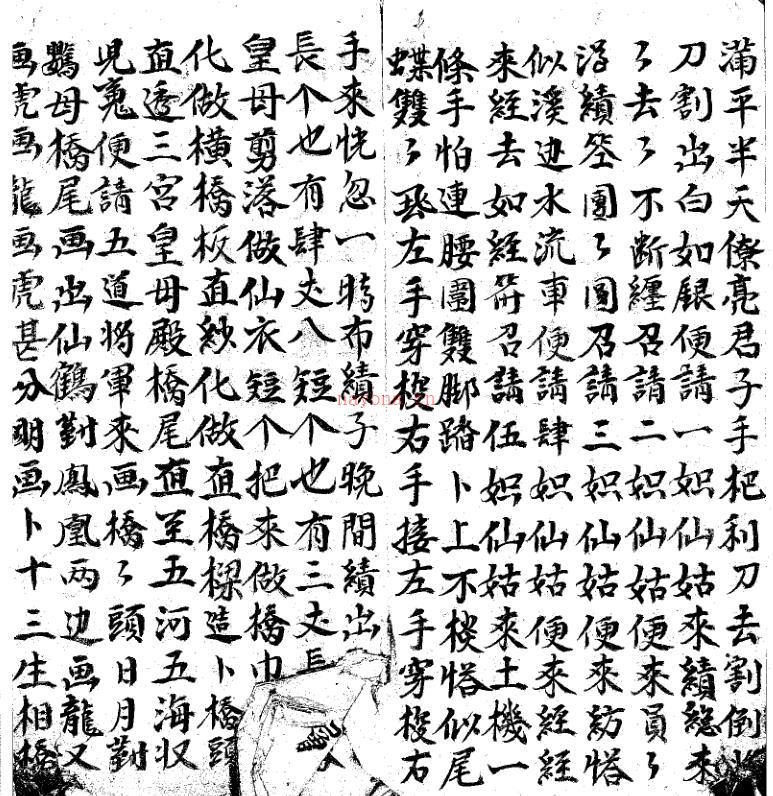 蒲平半天僚亮君子手把利刀去割倒
刀割出白如銀便請一姒仙姑來績緦來
了去了不斷纏召請二姒仙姑便來員了
淂績笁團了圓召請三姒仙姑便來紡恪
似溪边水流車便請肆姒仙姑便來經經
來經去如經符召請伍姒仙姑來土機一
條手怕連腰圍雙脚踏卜上不梭恪似尾
蝶雙了飛左手穿梭右手接左手穿梭右
手來恍忽一時布績子晚間績出
長个也有肆丈八短个也有三丈長
皇母剪落做仙衣短个把來做橋巾
化做橫橋板直紗化做直橋樑造卜橋頭
直透三宮皇母殿橋尾直至五河五海収
児冤便請五道将軍來画橋了頭日月對
鸚母橋尾画出仙鶴對鳳凰两边画龍又
画虎画龍画虎甚分明画卜十三生相橋
nayona.cn